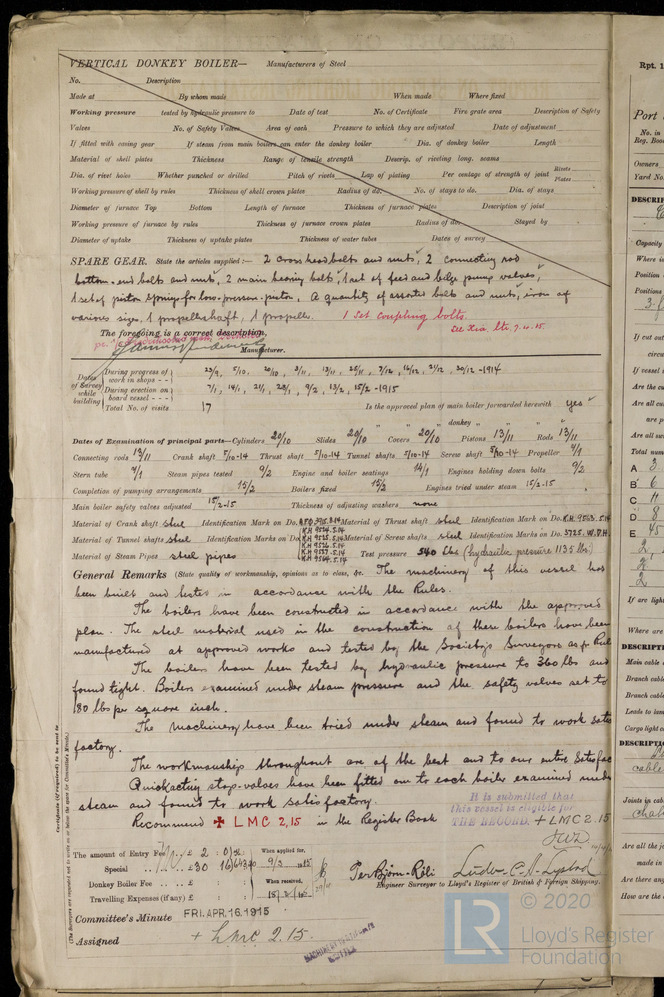 VERTICAL DONKEY BOILER— Manufacturers of Steel
No. Description
Made at By whom made When made Where fixed
Working pressure tested by hydraulic pressure to Date of test No. of Certificate Fire grate area Description of Safety
Valves No. of Safety Valves Area of each Pressure to which they are adjusted Date of adjustment
If fitted with easing gear If steam from main boilers can enter the donkey boiler Dia. of donkey boiler Length
Material of shell plates Thickness Range of tensile strength Descrip. of riveting long. seams
Dia. of rivet holes Whether punched or drilled Pitch of rivets Lap of plating Per centage of strength of joint Rivets Plates
Working pressure of shell by rules Thickness of shell crown plates Radius of do. No. of stays to do. Dia. of stays
Diameter of furnace Top Bottom Length of furnace Thickness of furnace plates Description of joint
Working pressure of furnace by rules Thickness of furnace crown plates Radius of do. Stayed by
Diameter of uptake Thickness of uptake plates Thickness of water tubes Dates of survey
SPARE GEAR. State the articles supplied:— 2 crosshead bolts and nuts, 2 connecting rod
bottom-end bolts and nuts, 2 main bearing bolts, 1 set of feed and bilge pump valves,
1 set of piston springs for low-pressure-piston, A quantity of assorted bolts and nuts, iron of
various sizes, 1 propellershaft, 1 propeller. 1 Set coupling bolts.
The foregoing is a correct description,
Manufacturer.
Dates of Survey while building
During progress of work in shops - - 23/9, 5/10, 20/10, 3/11, 13/11, 25/11, 7/12, 14/12, 2/12, 30/12 -1914
During erection on board vessel - - - 7/1, 14/1, 21/1, 29/1, 9/2, 13/2, 15/2 -1915
Total No. of visits 17 Is the approved plan of main boiler forwarded herewith yes
" " " donkey " " "
Dates of Examination of principal parts—Cylinders 20/10 Slides 20/10 Covers 20/10 Pistons 13/11 Rods 13/11
Connecting rods 13/11 Crank shaft 5/10-14 Thrust shaft 5/10-14 Tunnel shafts 5/10-14 Screw shaft 5/10-14 Propeller 7/1
Stern tube 7/1 Steam pipes tested 9/2 Engine and boiler seatings 14/1 Engines holding down bolts 9/2
Completion of pumping arrangements 15/2 Boilers fixed 15/2 Engines tried under steam 15/2-15
Main boiler safety valves adjusted 15/2-15 Thickness of adjusting washers none
Material of Crank shaft steel Identification Mark on Do. Material of Thrust shaft steel Identification Mark on Do. K.H. 9563.5.14
Material of Tunnel shafts steel Identification Marks on Do. K.H. 9525.5.14 Material of Screw shafts steel Identification Marks on Do. 3725.W.D.H.
Material of Steam Pipes steel pipes Test pressure 540 lbs (hydraulic pressure 1135 lbs)
General Remarks (State quality of workmanship, opinions as to class, &c. The machinery of this vessel has
been built and tested in accordance with the Rules.
The boilers have been constructed in accordance with the approved
plan. The steel material used in the construction of these boilers have been
manufactured at approved works and tested by the Society's Surveyors as per Rul
The boilers have been tested by hydraulic pressure to 360 lbs and
found tight. Boilers examined under steam pressure and the safety valves set to
180 lbs per square inch.
The machinery have been tried under steam and found to work satis
factory.
The workmanship throughout are of the best and to our entire satisfac
Quick acting stop-valves have been fitted on to each boiler examined unde
steam and found to work satisfactory.
Recommend ✠ LMC 2,15 in the Register Book
It is submitted that
this vessel is eligible for
THE RECORD. + LMC 2.15
The amount of Entry Fee £ 2 : 0 When applied for,
Special £30 9/3 1915
Donkey Boiler Fee £ When received,
Travelling Expenses (if any) £ 15/3/15
Engineer Surveyor to Lloyd's Register of British & Foreign Shipping.
Committee's Minute FRI. APR. 16. 1915
Assigned + LMC 2.15.
© 2020
LR
Lloyd's Register
Foundation
Certificate (if required) to be sent to
(The Surveyors are requested not to write on or below the space for Committee's Minute.)
Rpt. 1
Port
No. in
Reg. Boo
Owners
Yard No.
DESCRIP
Capacity
Where is
Position
Positions
If cut out
circu
If vessel
Are the cu
Are all cu
are p
Are all sw
Total num
A 3
B 6
C 11
D 8
E 45
If arc ligh
Where are
DESCRIPT
Main cable
Branch cabl
Branch cabl
Leads to lam
Cargo light c
DESCRIPTIO
cable
Joints in cab
Are all the jo
made in
Are there any
How are the c